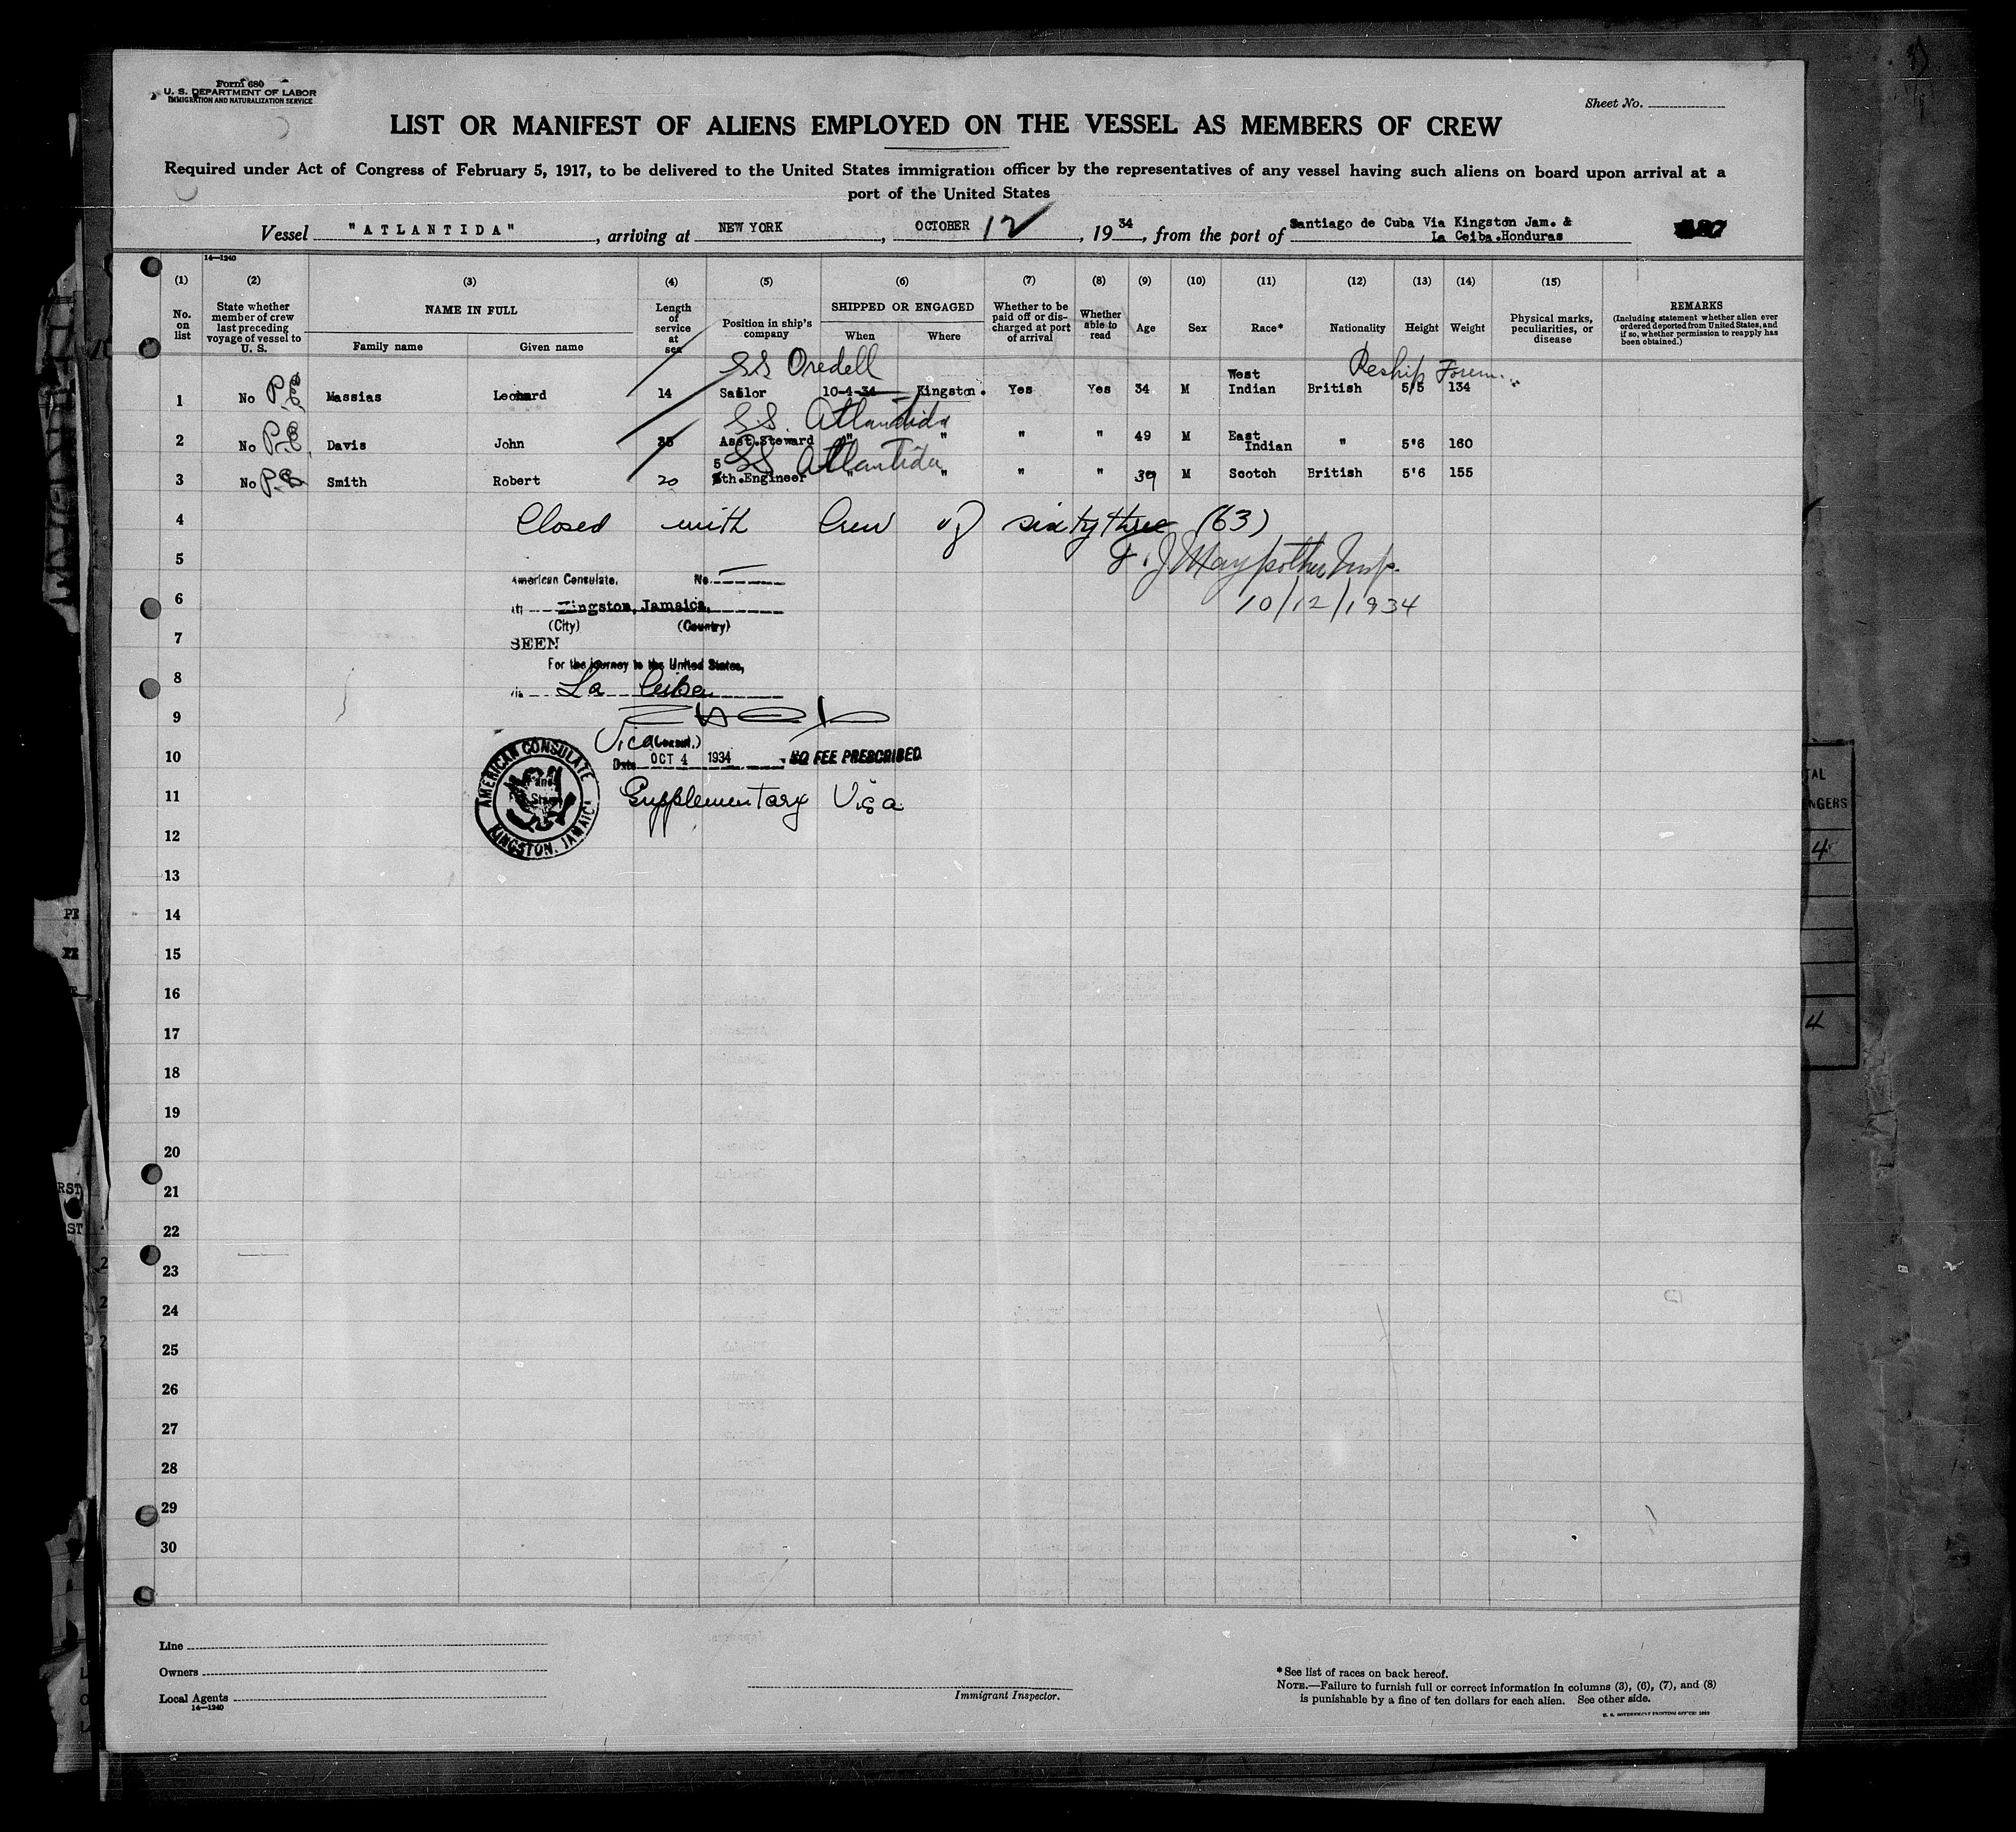 Form 680
U. S. DEPARTMENT OF LABOR
IMMIGRATION AND NATURALIZATION SERVICE
Sheet No.
LIST OR MANIFEST OF ALIENS EMPLOYED ON THE VESSEL AS MEMBERS OF CREW
Required under Act of Congress of February 5, 1917, to be delivered to the United States immigration officer by the representatives of any vessel having such aliens on board upon arrival at a
port of the United States
Vessel "ATLANTIDA", arriving at NEW YORK, OCTOBER 12, 1934, from the port of Santiago de Cuba Via Kingston Jam. &
La Ceiba.Honduras
14—1240
(1) (2) (3) (4) (5) (6) (7) (8) (9) (10) (11) (12) (13) (14) (15)
No. on list
State whether member of crew last preceding voyage of vessel to U. S.
NAME IN FULL
Family name Given name
Length of service at sea
Position in ship's company
SHIPPED OR ENGAGED
When Where
Whether to be paid off or discharged at port of arrival
Whether able to read
Age
Sex
Race*
Nationality
Height
Weight
Physical marks, peculiarities, or disease
REMARKS
(Including statement whether alien ever ordered deported from United States, and if so, whether permission to reapply has been obtained.)
SS Oredell Reship Foreign
1 No Massias Leonard 14 Sailor 10-4-34 Kingston. Yes Yes 34 M West Indian British 5/5 134
SS. Atlantida
2 No Davis John 35 Asst.Steward " " " " 49 M East Indian " 5'6 160
SS Atlantida
3 No Smith Robert 20 5th.Engineer " " " " 39 M Scotch British 5'6 155
4 Closed with Crew of sixty three (63)
5
10/12/1934
American Consulate, No.
at Kingston, Jamaica,
(City) (Country)
6
7
SEEN
For the journey to the United States,
8
via La Ceiba
9
Vice (Consul.)
10
Date OCT 4 1934 NO FEE PRESCRIBED
AMERICAN CONSULATE
KINGSTON, JAMAICA
11 Supplementary Visa
12
13
14
15
16
17
18
19
20
21
22
23
24
25
26
27
28
29
30
Line
Owners
Local Agents
14—1240
Immigrant Inspector.
* See list of races on back hereof.
NOTE.—Failure to furnish full or correct information in columns (3), (6), (7), and (8)
is punishable by a fine of ten dollars for each alien. See other side.